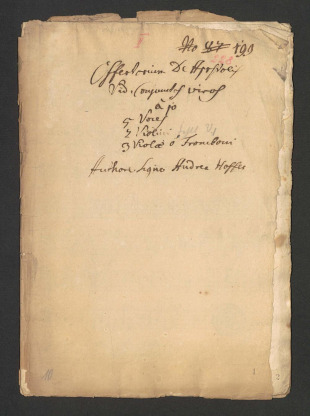 No 190
Offertorium De Apostolis
Vidi conjunctos viros
à 10
5 Voces
2 Violini
3 Violæ ò Tromboni
Authore Signo Andrea Hoffer